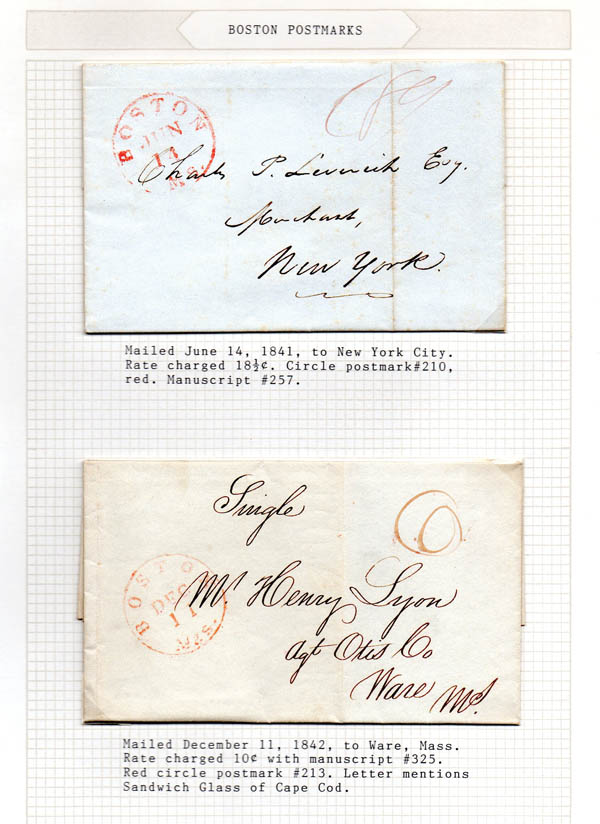 BOSTON POSTMARKS
BOSTON
JUN
14
MS.
Charles P. Leverich Esq.
Merchant,
New York.
Mailed June 14, 1841, to New York City.
Rate charged 18½¢. Circle postmark#210,
red. Manuscript #257.
Single
BOSTON
DEC
11
MS.
Mr Henry Lyon
Agt Otis Co
Ware Ms.
Mailed December 11, 1842, to Ware, Mass.
Rate charged 10¢ with manuscript #325.
Red circle postmark #213. Letter mentions
Sandwich Glass of Cape Cod.